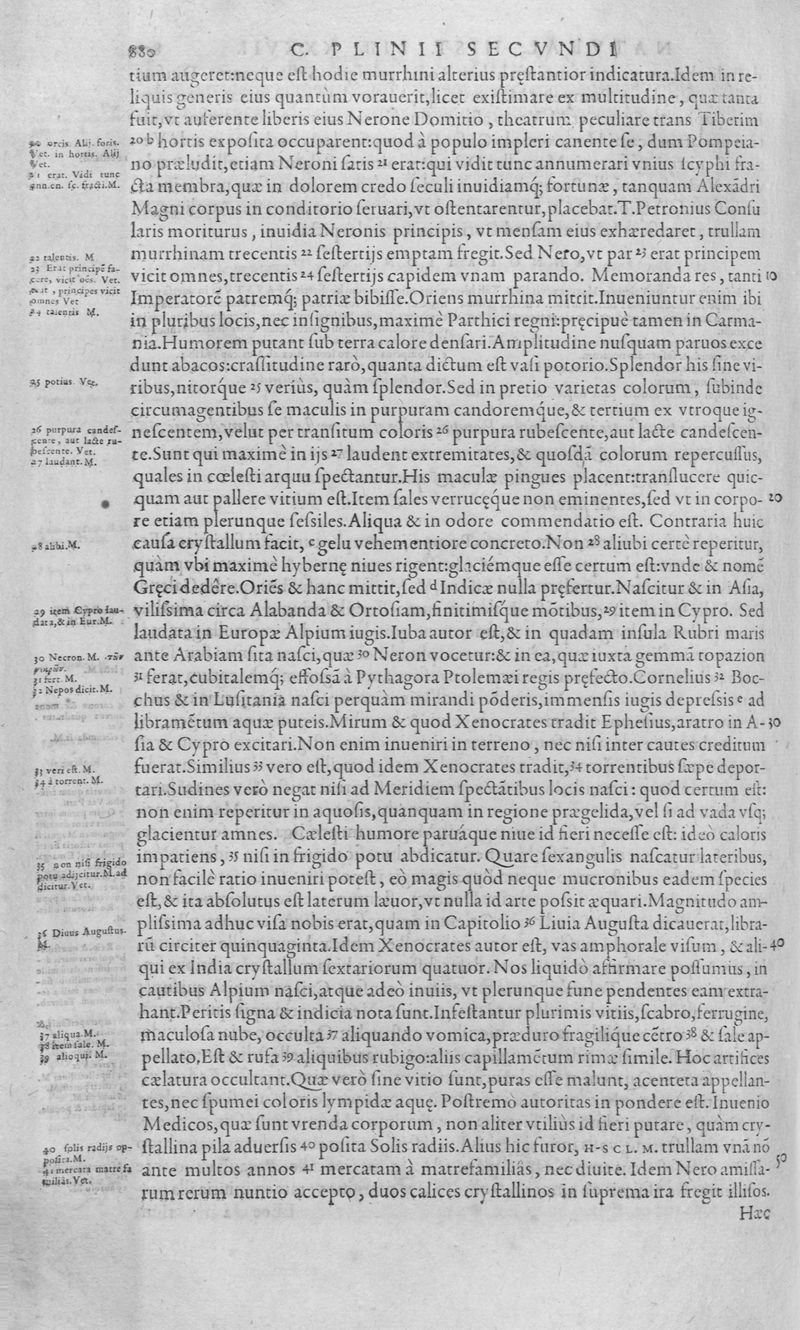 880
C. PLINII SECVNDI
tium augeret:neque eſt hodie murrhini alterius pręſtantior indicatura.Idem in re-
liquis generis eius quantùm vorauerit,licet exiſtimare ex multitudine, quæ tanta
fuit,vt auferente liberis eius Nerone Domitio, theatrum peculiare trans Tiberim
20 b hortis expoſita occuparent:quod à populo impleri canente ſe, dum Pompeia-
no præludit,etiam Neroni ſatis 21 erat:qui vidit tunc annumerari vnius ſcyphi fra-
cta membra,quæ in dolorem credo ſeculi inuidiamq; fortunæ, tanquam Alexādri
Magni corpus in conditorio ſeruari,vt oſtentarentur,placebat.T.Petronius Conſu
laris moriturus, inuidia Neronis principis, vt menſam eius exhæredaret, trullam
murrhinam trecentis 22 ſeſtertijs emptam fregit.Sed Nero,vt par 23 erat principem
vicit omnes,trecentis 24 ſeſtertijs capidem vnam parando. Memoranda res, tanti 10
Imperatorē patremq; patriæ bibiſſe.Oriens murrhina mittit.Inueniuntur enim ibi
in pluribus locis,nec inſignibus,maximè Parthici regni:pręcipuè tamen in Carma-
nia.Humorem putant ſub terra calore denſari.Amplitudine nuſquam paruos exce
dunt abacos:craſſitudine rarò,quanta dictum eſt vaſi potorio.Splendor his ſine vi-
ribus,nitorq́ue 25 veriùs, quàm ſplendor.Sed in pretio varietas colorum, ſubinde
circumagentibus ſe maculis in purpuram candoremq́ue,& tertium ex vtroque ig-
neſcentem,velut per tranſitum coloris 26 purpura rubeſcente,aut lacte candeſcen-
te.Sunt qui maximè in ijs 27 laudent extremitates,& quoſdā colorum repercuſſus,
quales in cœleſti arquu ſpectantur.His maculæ pingues placent:tranſlucere quic-
quam aut pallere vitium eſt.Item ſales verrucęq́ue non eminentes,ſed vt in corpo- 20
re etiam plerunque ſeſsiles.Aliqua & in odore commendatio eſt. Contraria huic
cauſa cryſtallum facit, c gelu vehementiore concreto.Non 28 aliubi certè reperitur,
quàm vbi maximè hybernę niues rigent:glaciémque eſſe certum eſt:vnde & nomē
Gręci dedêre.Oriēs & hanc mittit,ſed d Indicæ nulla pręfertur.Naſcitur & in Aſia,
viliſsima circa Alabanda & Ortoſiam,finitimiſq́ue mōtibus,29 item in Cypro. Sed
laudata in Europæ Alpium iugis.Iuba autor eſt,& in quadam inſula Rubri maris
ante Arabiam ſita naſci,quæ 30 Neron vocetur:& in ea,quæ iuxta gemmā topazion
31 ferat,cubitalemq; effoſsā à Pythagora Ptolemæi regis pręfecto.Cornelius 32 Boc-
chus & in Luſitania naſci perquàm mirandi pōderis,immenſis iugis depreſsis e ad
libramētum aquæ puteis.Mirum & quod Xenocrates tradit Epheſius,aratro in A- 30
ſia & Cypro excitari.Non enim inueniri in terreno, nec niſi inter cautes creditum
fuerat.Similius 33 vero eſt,quod idem Xenocrates tradit,34 torrentibus ſæpe depor-
tari.Sudines verò negat niſi ad Meridiem ſpectātibus locis naſci: quod certum eſt:
non enim reperitur in aquoſis,quanquam in regione prægelida,vel ſi ad vada vſq;
glacientur amnes. Cæleſti humore paruáque niue id fieri neceſſe eſt: ideò caloris
impatiens, 35 niſi in frigido potu abdicatur. Quare ſexangulis naſcatur lateribus,
non facilè ratio inueniri poteſt, eò magis quòd neque mucronibus eadem ſpecies
eſt,& ita abſolutus eſt laterum læuor,vt nulla id arte poſsit æquari.Magnitudo am-
pliſsima adhuc viſa nobis erat,quam in Capitolio 36 Liuia Auguſta dicauerat,libra-
rū circiter quinquaginta.Idem Xenocrates autor eſt, vas amphorale viſum, & ali- 40
qui ex India cryſtallum ſextariorum quatuor. Nos liquidò affirmare poſſumus, in
cautibus Alpium naſci,atque adeò inuiis, vt plerunque fune pendentes eam extra-
hant.Peritis ſigna & indicia nota ſunt.Infeſtantur plurimis vitiis,ſcabro,ferrugine,
maculoſa nube, occulta 37 aliquando vomica,præduro fragilíque cētro 38 & ſale ap-
pellato,Eſt & rufa 39 aliquibus rubigo:aliis capillamētum rimæ ſimile. Hoc artifices
cælatura occultant.Quæ verò ſine vitio ſunt,puras eſſe malunt, acenteta appellan-
tes,nec ſpumei coloris lympidæ aquę. Poſtremò autoritas in pondere eſt. Inuenio
Medicos,quæ ſunt vrenda corporum, non aliter vtiliùs id fieri putare, quàm cry-
ſtallina pila aduerſis 40 poſita Solis radiis.Alius hic furor, H-S C L. M. trullam vnā nō
ante multos annos 41 mercatam à matrefamiliâs, nec diuite. Idem Nero amiſſa- 50
rum rerum nuntio accepto, duos calices cryſtallinos in ſuprema ira fregit illiſos.
Hæc
20 orcis. Alij. foris.
Vet. in hortis. Alij
Vet.
21 erat. Vidi tunc
ann.en. ſc. fracti.M.
22 talentis. M
23 Erat principē fa-
cere, vicit oēs. Vet.
it, principes vicit
omnes Vet
24 talentis M.
25 potius. Vet.
26 purpura candeſ-
cente, aut lacte ru-
beſcente. Vet.
27 laudant. M.
28 alibi.M.
29 item Cypro lau-
data,& in Eur.M.
30 Necron. M.
31 fert. M.
32 Nepos dicit. M.
33 veri eſt. M.
34 à torrent. M.
35 non niſi frigido
potu adijcitur.M.ad
dicitur.Vet.
36 Diuus Auguſtus.
M.
37 aliqua M.
38 item ſale. M.
39 alioqui. M.
40 ſolis radijs op-
poſita.M.
41 mercata matrefa
miliâs.Vet.